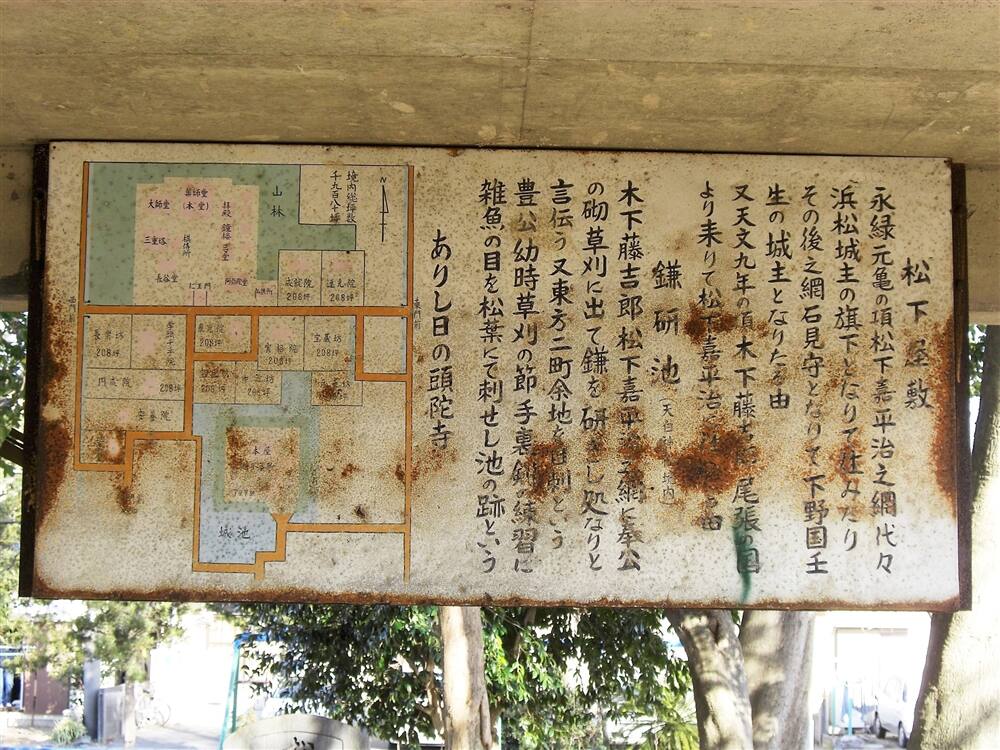 松下屋敷
永緑元亀の項松下嘉平治之網代々
浜松城主の旗下となりて住みたり
その後之網石見守となりて下野国壬
生の城主となりたる由
又天文九年の頃木下藤吉 尾張の国
より来りて松下嘉平治 由
鎌研池
木下藤吉郎松下嘉平治之網に奉公
の砌草刈に出て鎌を研ぎし処なりと
言伝う又東方二町余地を という
豊公幼時草刈の節手裏剣の練習に
雑魚の目を松葉にて刺せし池の跡という
ありし日の頭陀寺
境内総坪数
千九百八十坪
N
山林
薬師堂
(本堂)
大師堂
拝殿
鐘楼
三重塔
長谷堂
仁王門
成就院
206坪
蓮光院
208坪
長楽坊
208坪
宝蔵坊
208坪
円成院
208坪
安養院
本屋
池
城